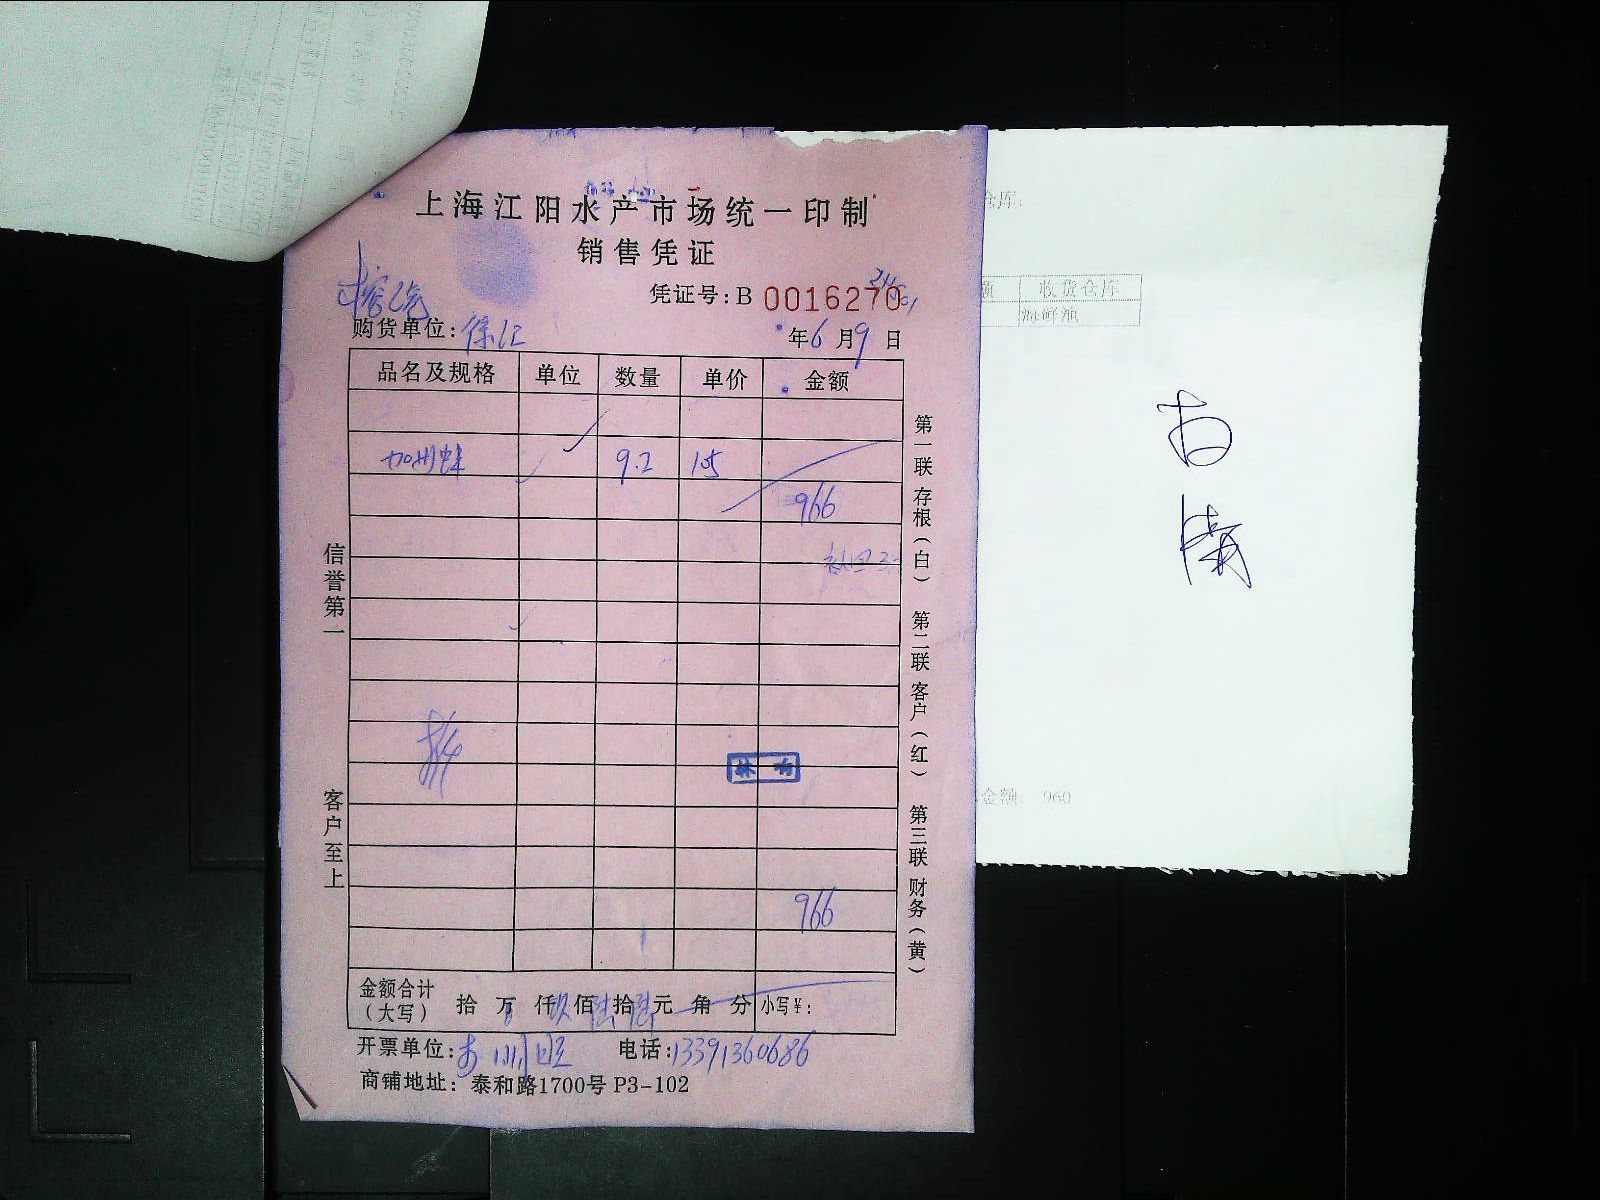 上海江阳水产市场统一印制
销售凭证
凭证号:B 0016270
购货单位:徐汇 年6月9日
品名及规格 单位 数量 单价 金额
加州蚌 9.2 105
966
966
金额合计(大写) 拾 万 仟玖佰陆拾陆元 角 分 小写¥:
开票单位: 电话:13391360686
商铺地址: 泰和路1700号 P3-102
信誉第一
客户至上
第一联 存根(白) 第二联 客户(红) 第三联 财务(黄)
仓库:
额 收货仓库
海鲜池
金额: 960